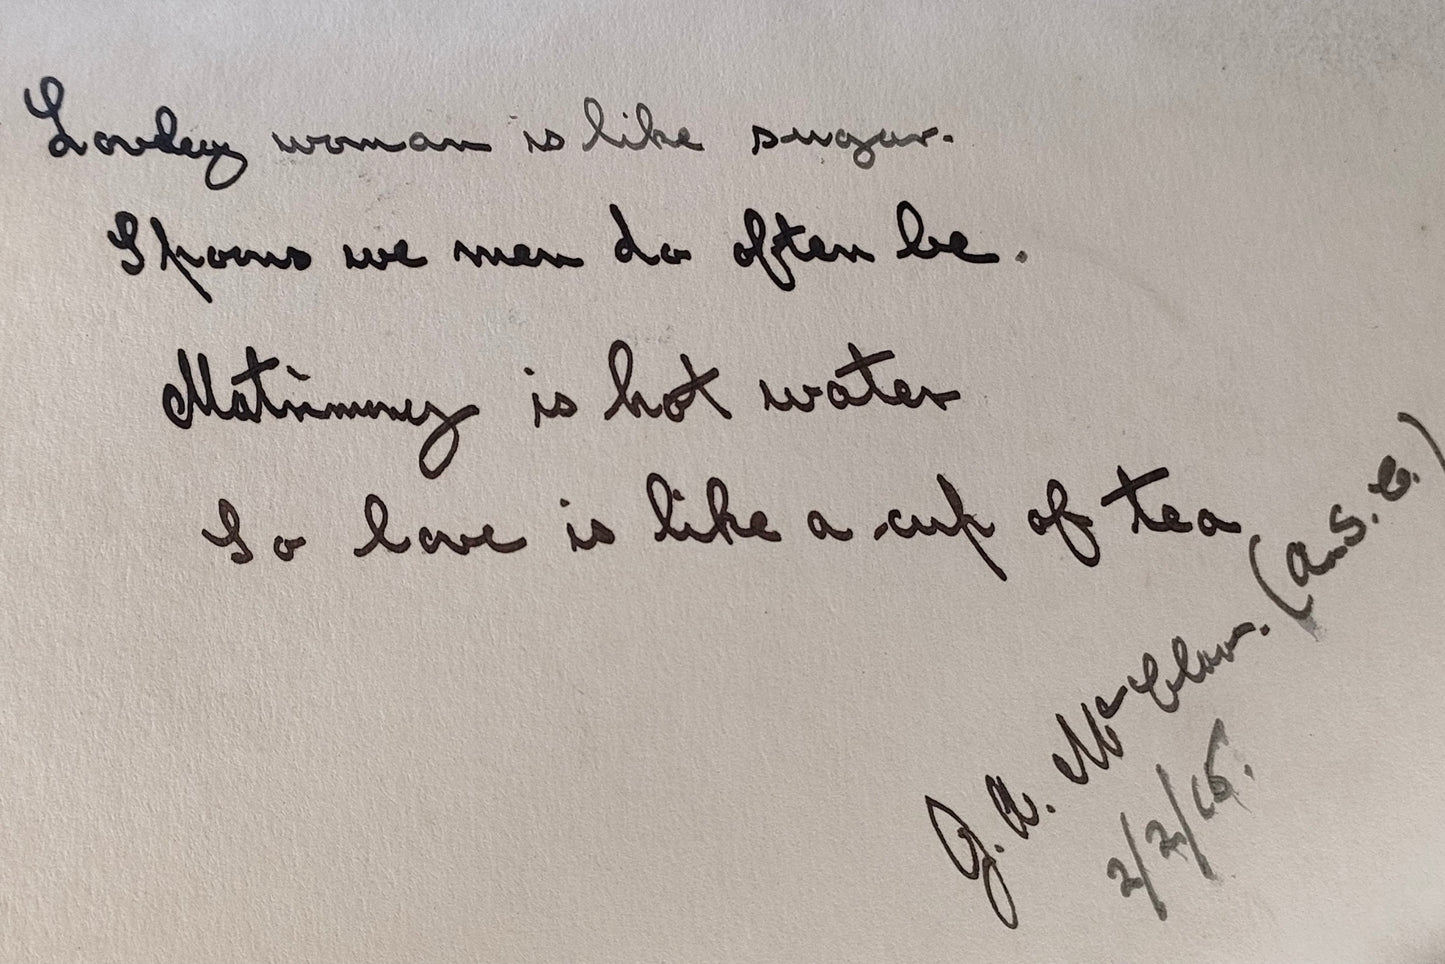 Lovley woman is like sugar.
Spoons we men do often be.
Matrimoney is hot water
So love is like a cup of tea
J. A. McClur. (A.S.C.)
2/2/15.